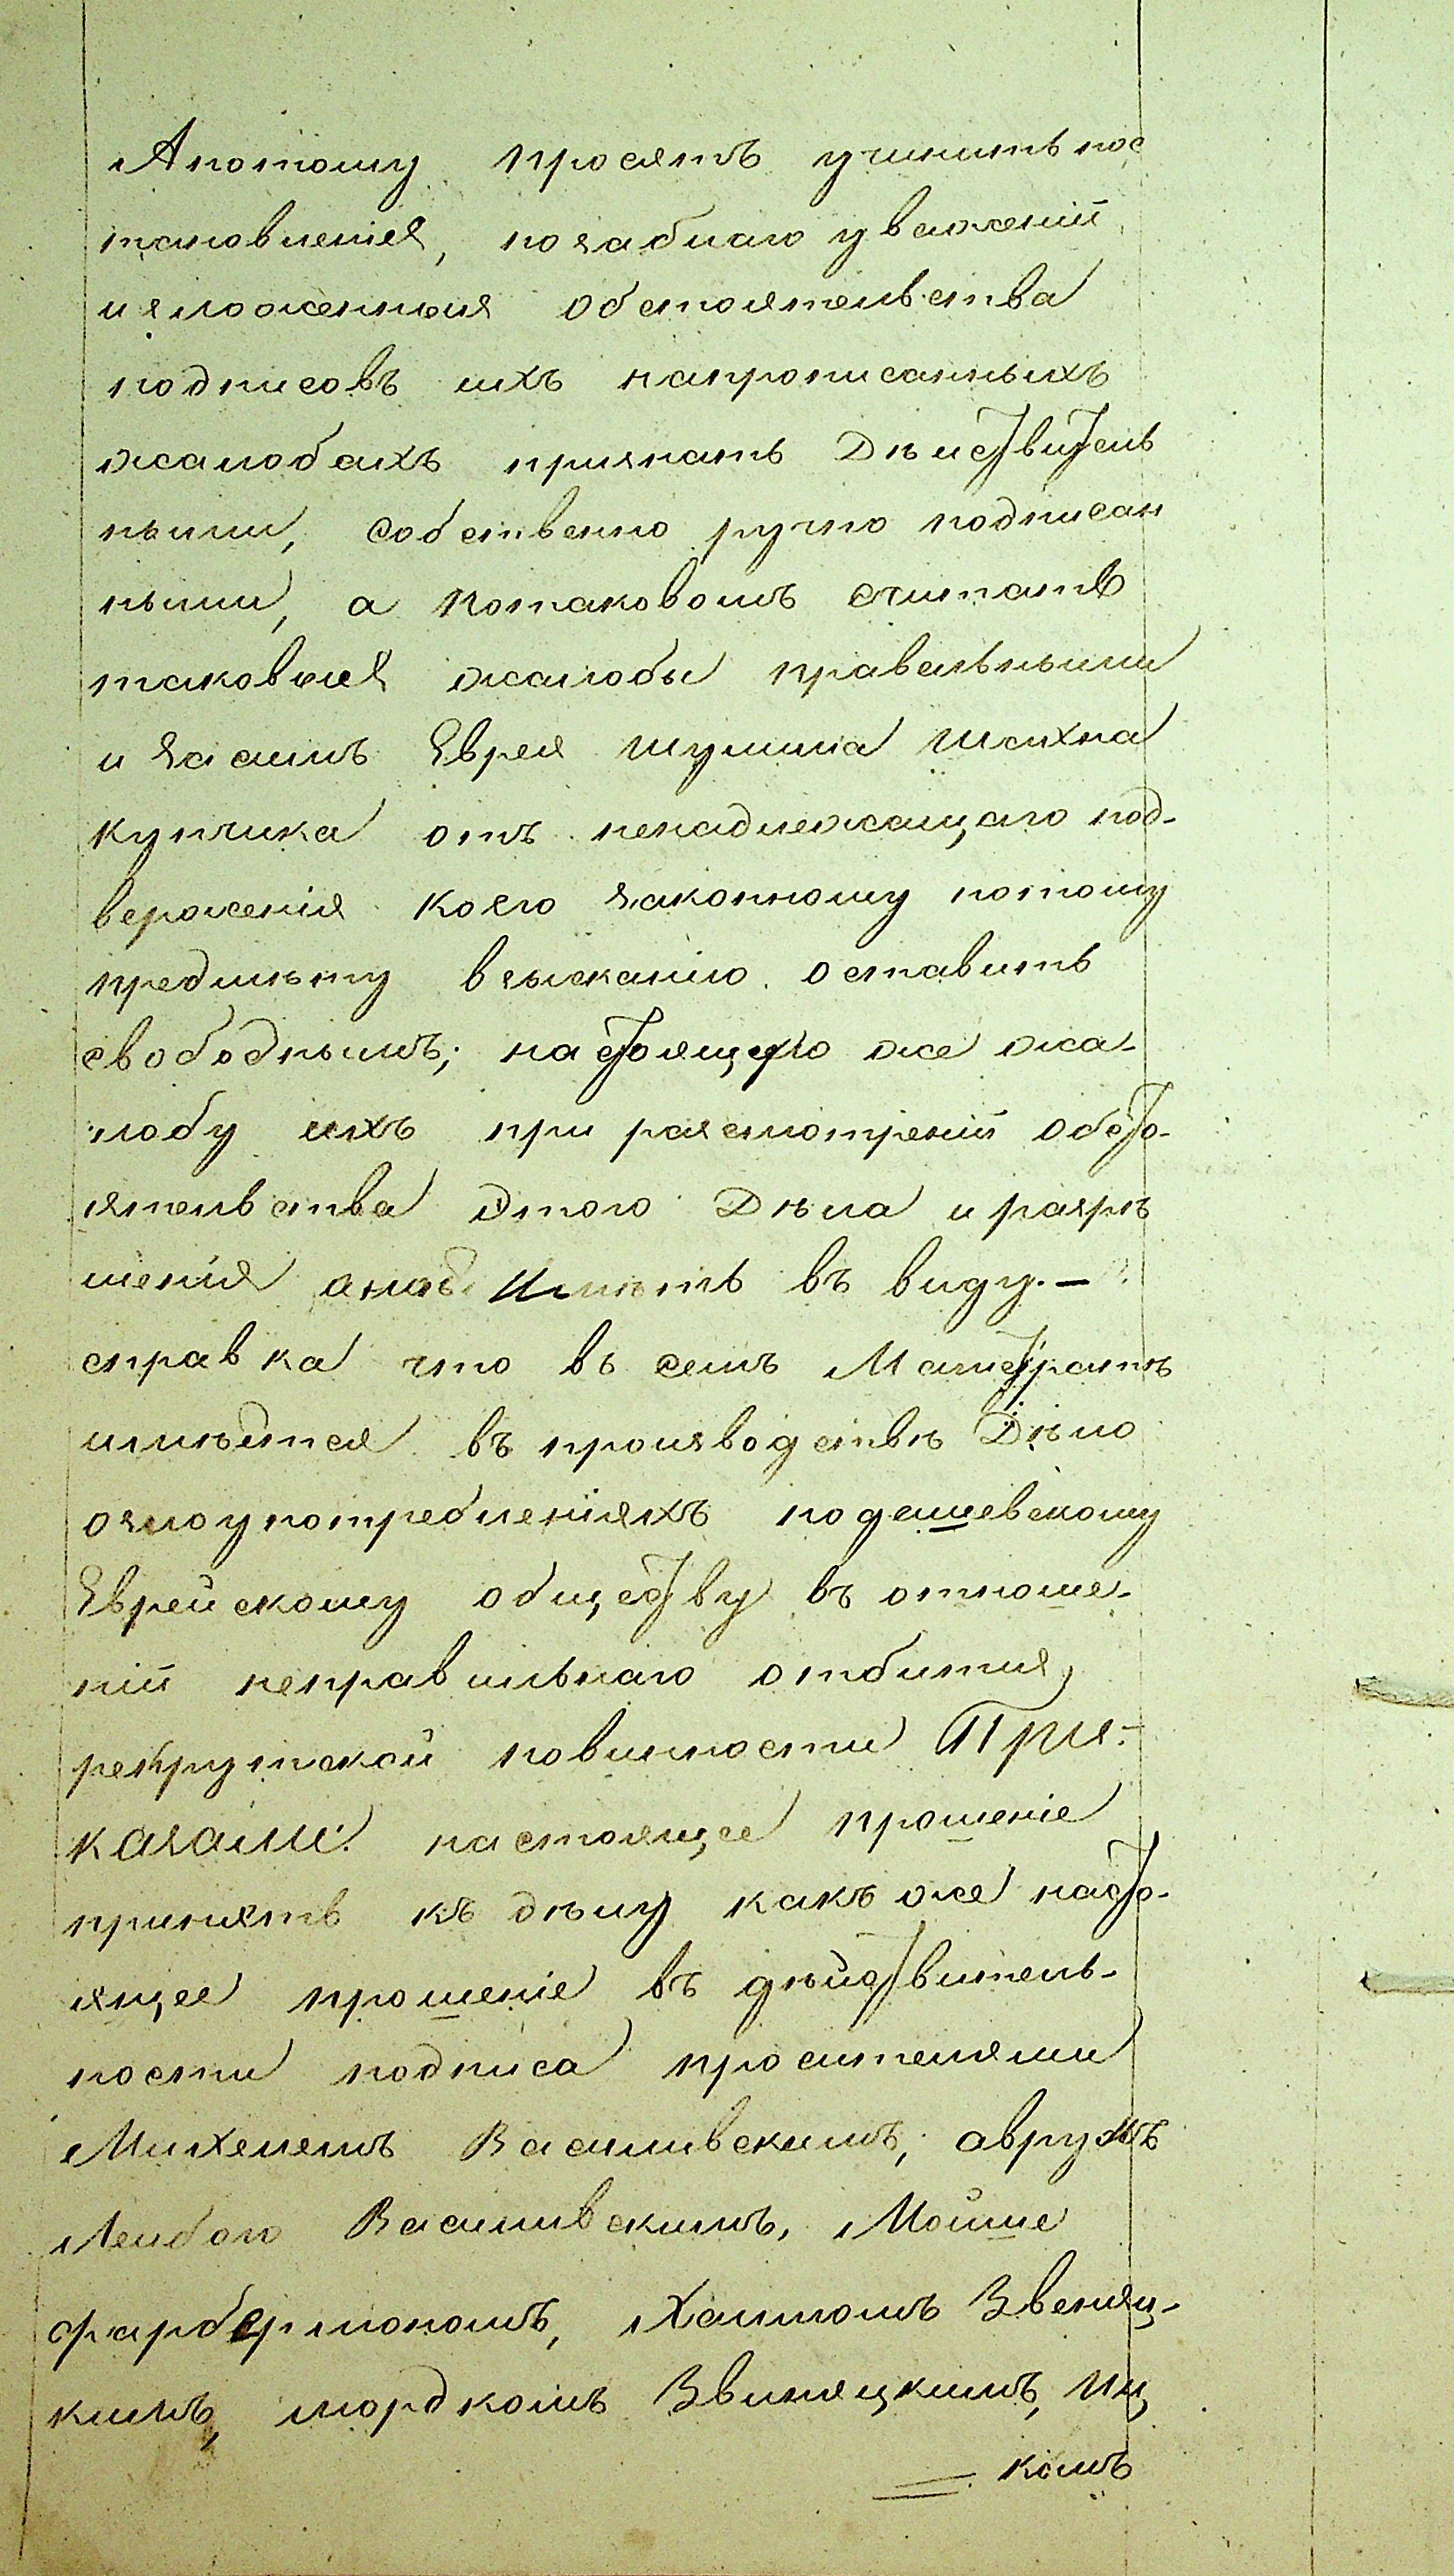 Апотому просятъ учинить пос
тановленія, позабнаго уваженій
изложенныя обстоятельства
подписовъ ихъ напрописанныхъ
жалобахъ признать Дѣиствитель
ными, собственно ручно подписан
ными, а потаковомъ считать
таковыя жалобы правельными
и засимъ Еврея Шулима Шахна
купчика отъ ненадлежащаго под-
верженія коего законному потому
предмѣту взысканію оставить
свободнымъ; настоящую же жа-
лобу ихъ при разсмотреній обсто-
ятельства этого Дѣла и разрѣ
шенія имѣть въ виду. —
справка что въ семъ Магистратѣ
имѣится въ производствѣ Дѣло
озлоупотребленіяхъ подешевскому
Еврейскому обществу въ отноше-
ній неправильнаго отбитія
рекрутской повинности При-
казали: настоящее прошеніе
принять къ дѣлу какъ же насто-
ящее прошеніе въ дѣйствитель-
ности подписа просителями
Михелемъ Василивскимъ; аврумъ
Лейбою Василивскимъ, Мойше
фарберманомъ, Хаимомъ Звеняц-
кимъ, мордкомъ Звиняцкимъ, Иц
комъ